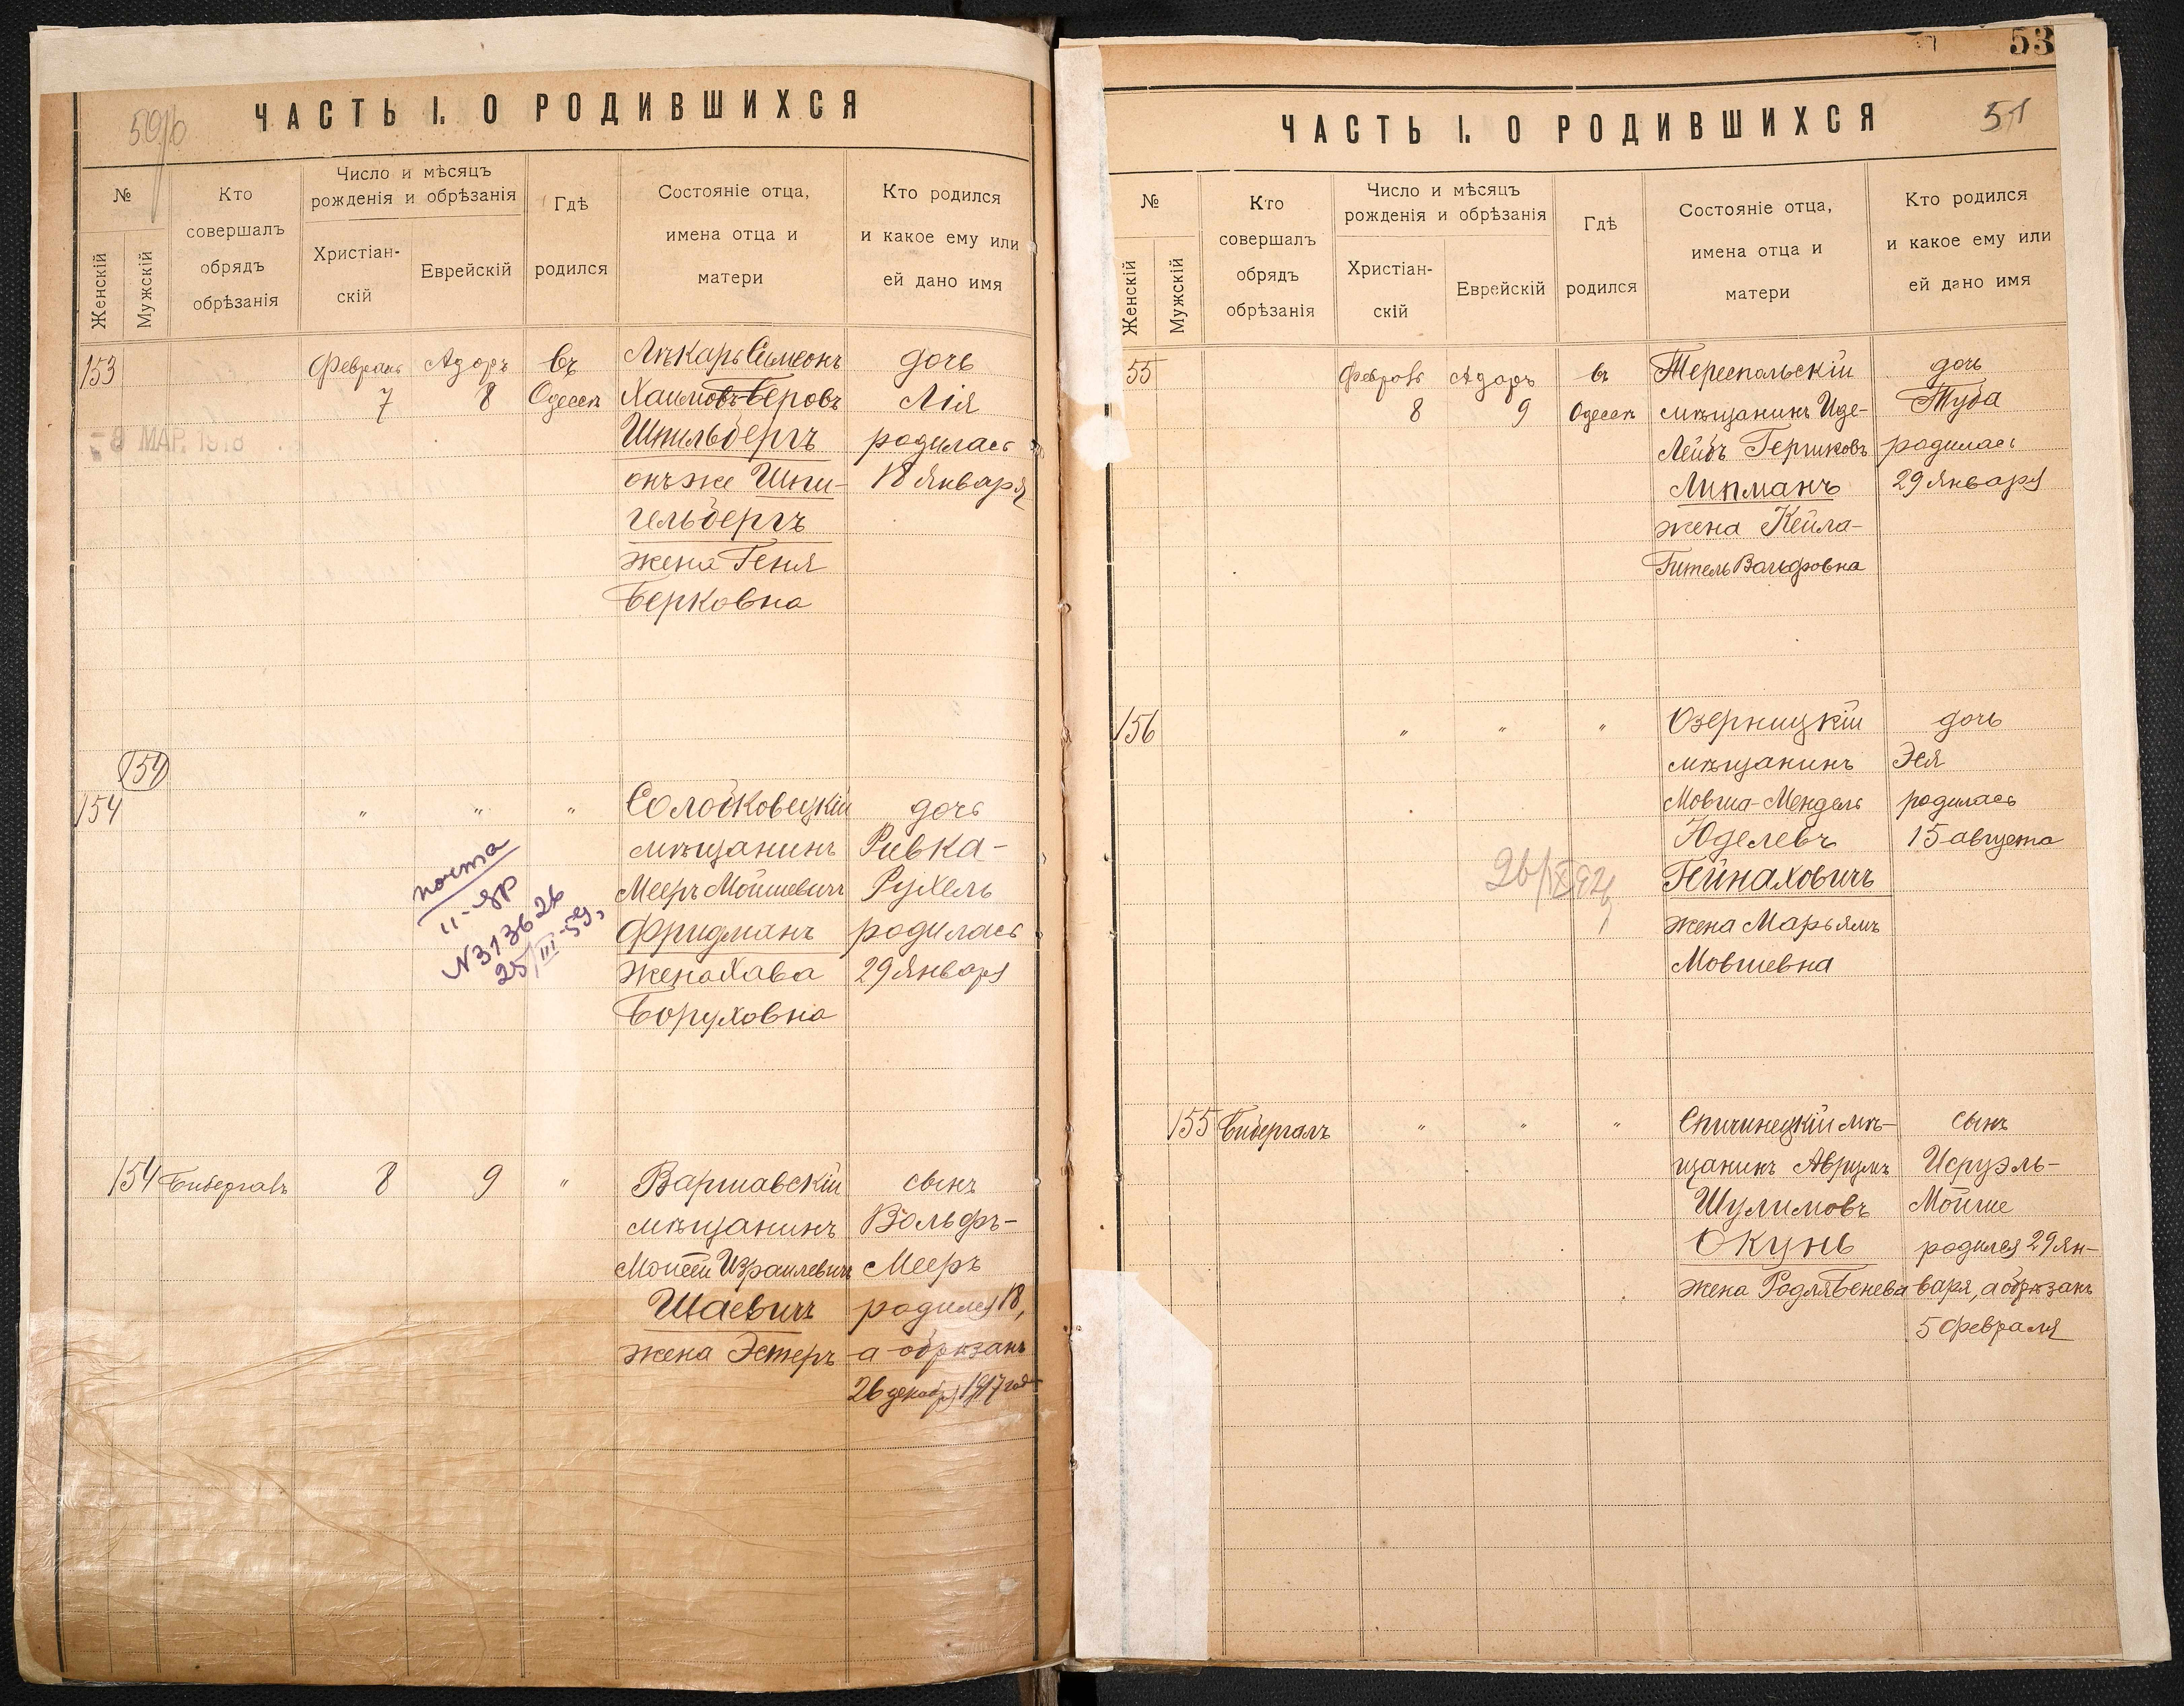 59/б
ЧАСТЬ I. О РОДИВШИХСЯ
№
Женскій
Мужскій
Кто
совершалъ
обрядъ
обрѣзанія
Число и мѣсяцъ
рожденія и обрѣзанія
Христіан-
скій
Еврейскій
Гдѣ
родился
Состояніе отца,
имена отца и
матери
Кто родился
и какое ему или
ей дано имя
153
Февраль
7
Адаръ
8
въ
Одессѣ
Лѣкарь Симеонъ
Хаимовъ-Беровъ
Шпильбергъ
онъ же Шпи-
гельбергъ
жена Геня
Берковна
дочь
Лія
родилась
18 Января
8 МАР. 1918
154
154
"
"
"
Солобковецкій
мѣщанинъ
Мееръ Мойшевичъ
Фридманъ
жена Хава
Боруховна
дочь
Ривка-
Рухель
родилась
29 Января
почта
II-ЯР
N313626
25/III-59,
154
Бибергалъ
8
9
"
Варшавскій
мѣщанинъ
Моисей Израилевичъ
Шаевичъ
жена Эстеръ
сынъ
Вольфъ-
Мееръ
родился 18,
а обрѣзанъ
26 декабр. 1917 год
53
51
ЧАСТЬ I. О РОДИВШИХСЯ
№
Женскій
Мужскій
Кто
совершалъ
обрядъ
обрѣзанія
Число и мѣсяцъ
рожденія и обрѣзанія
Христіан-
скій
Еврейскій
Гдѣ
родился
Состояніе отца,
имена отца и
матери
Кто родился
и какое ему или
ей дано имя
55
Февраль
8
Адаръ
9
въ
Одессѣ
Тереспольскій
мѣщанинъ Иде-
Лейбъ Гершковъ
Липманъ
жена Кейла-
Гитель Вольфовна
дочь
Туба
родилась
29 Января
156
"
"
"
Озерницкій
мѣщанинъ
Мовша-Мендель
Юделевъ
Гейнаховичъ
жена Марьямъ
Мовшевна
дочь
Эня
родилась
15 августа
155
Бибергалъ
"
"
"
Спичинецкій мѣ-
щанинъ Аврумъ
Шулимовъ
Окунь
жена Родля Бенева
сынъ
Исруэль-
Мойше
родился 29 Ян-
варя, а обрѣзанъ
5 Февраля